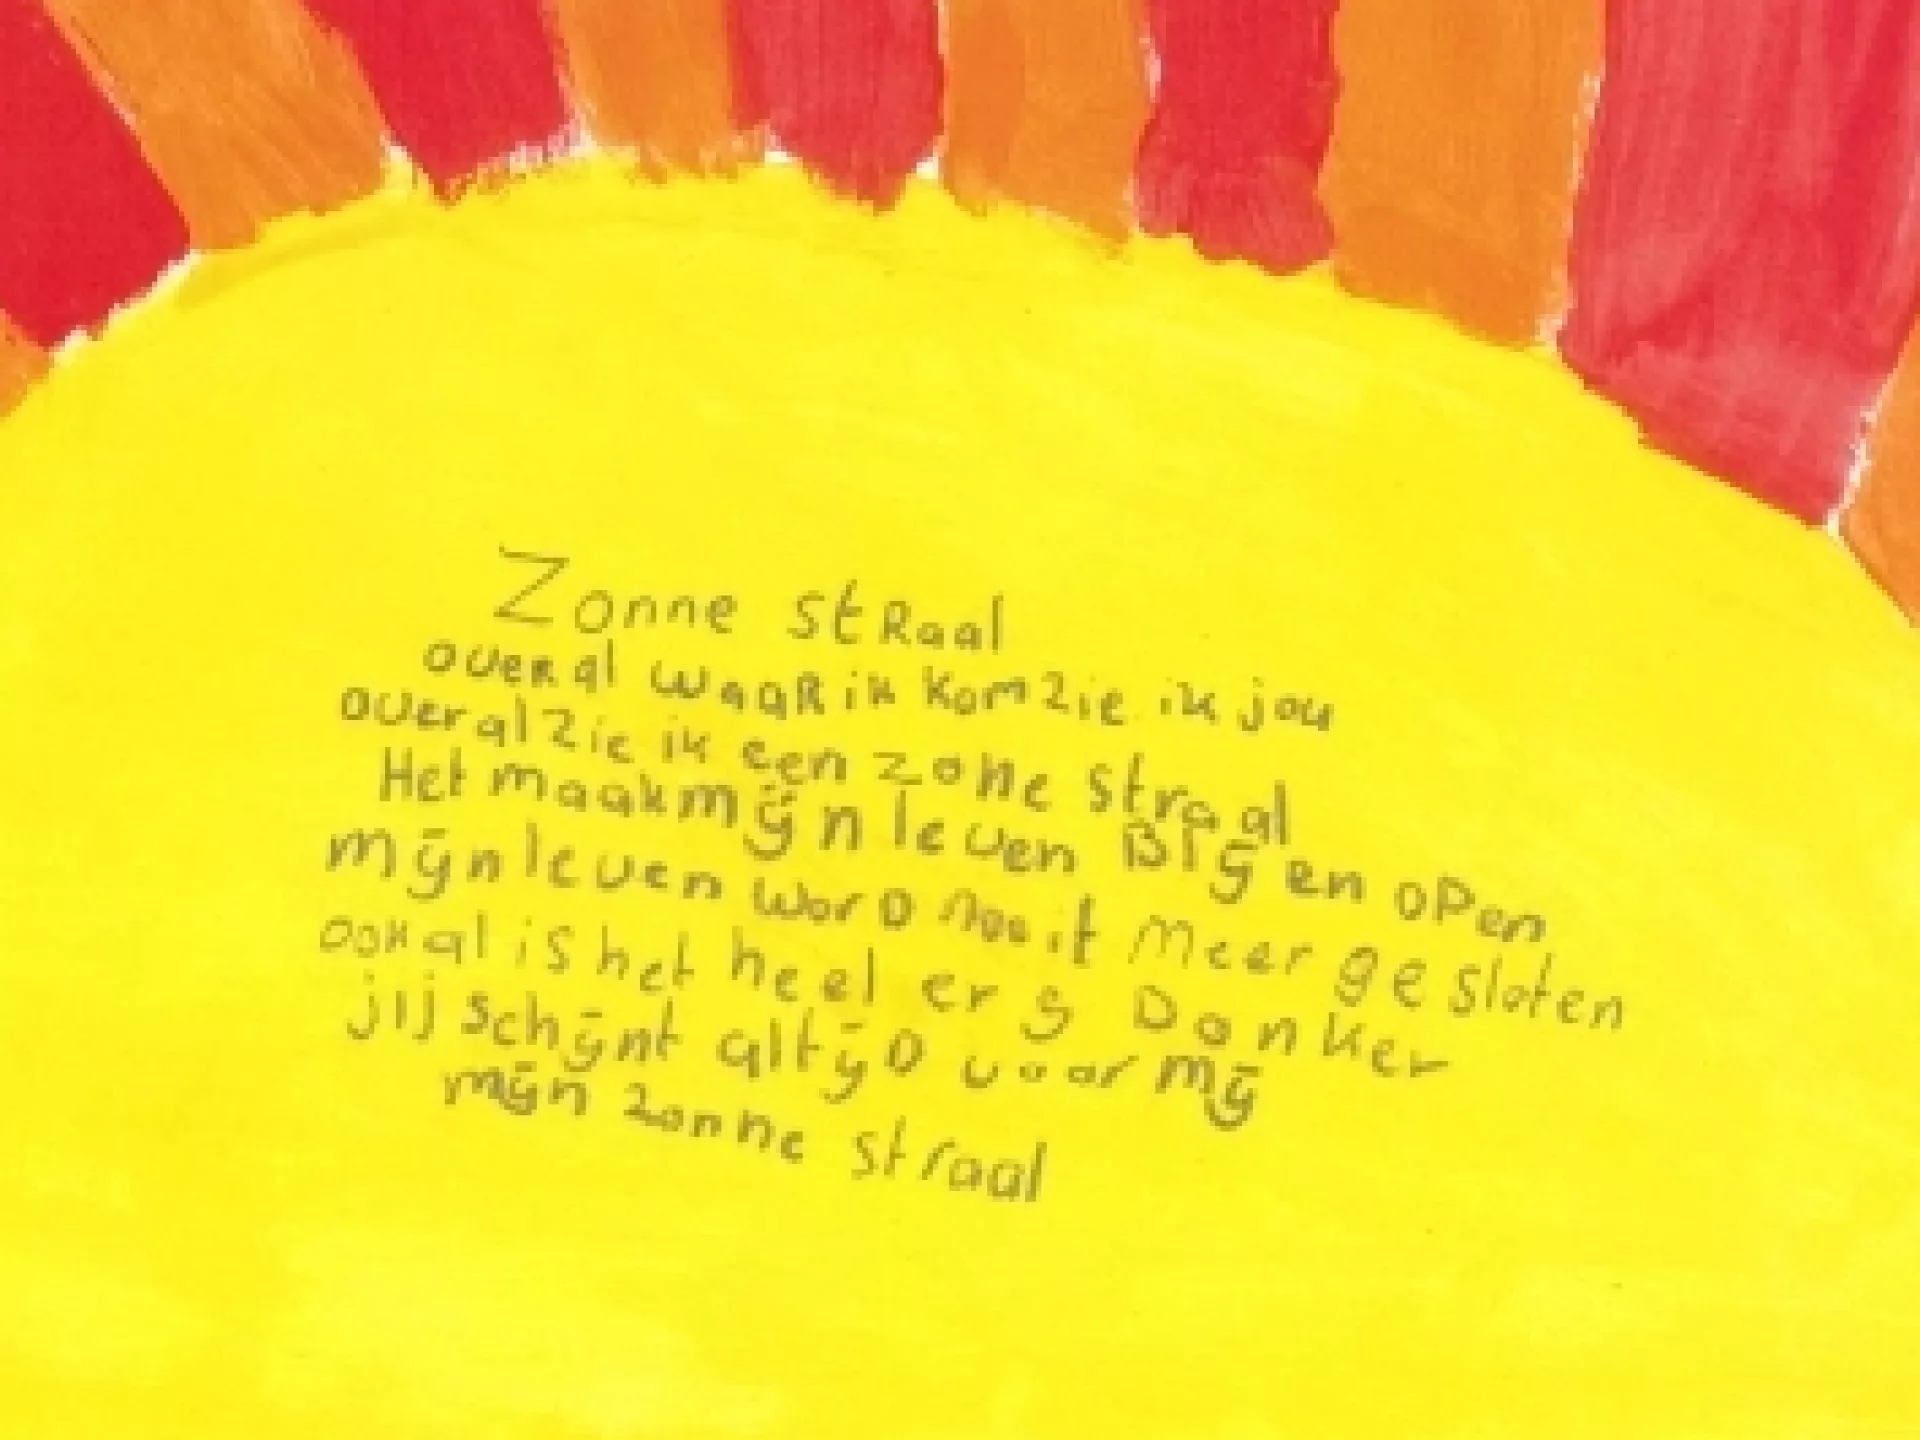 Zonne stRaal
overal waaR ik kom zie ik jou
overal zie ik een zone straal
Het maak mijn leven Blij en open
mijn leven word nooit meer gesloten
ook al is het heel erg Donker
jij schijnt altijD voor mij
mijn zonne straal